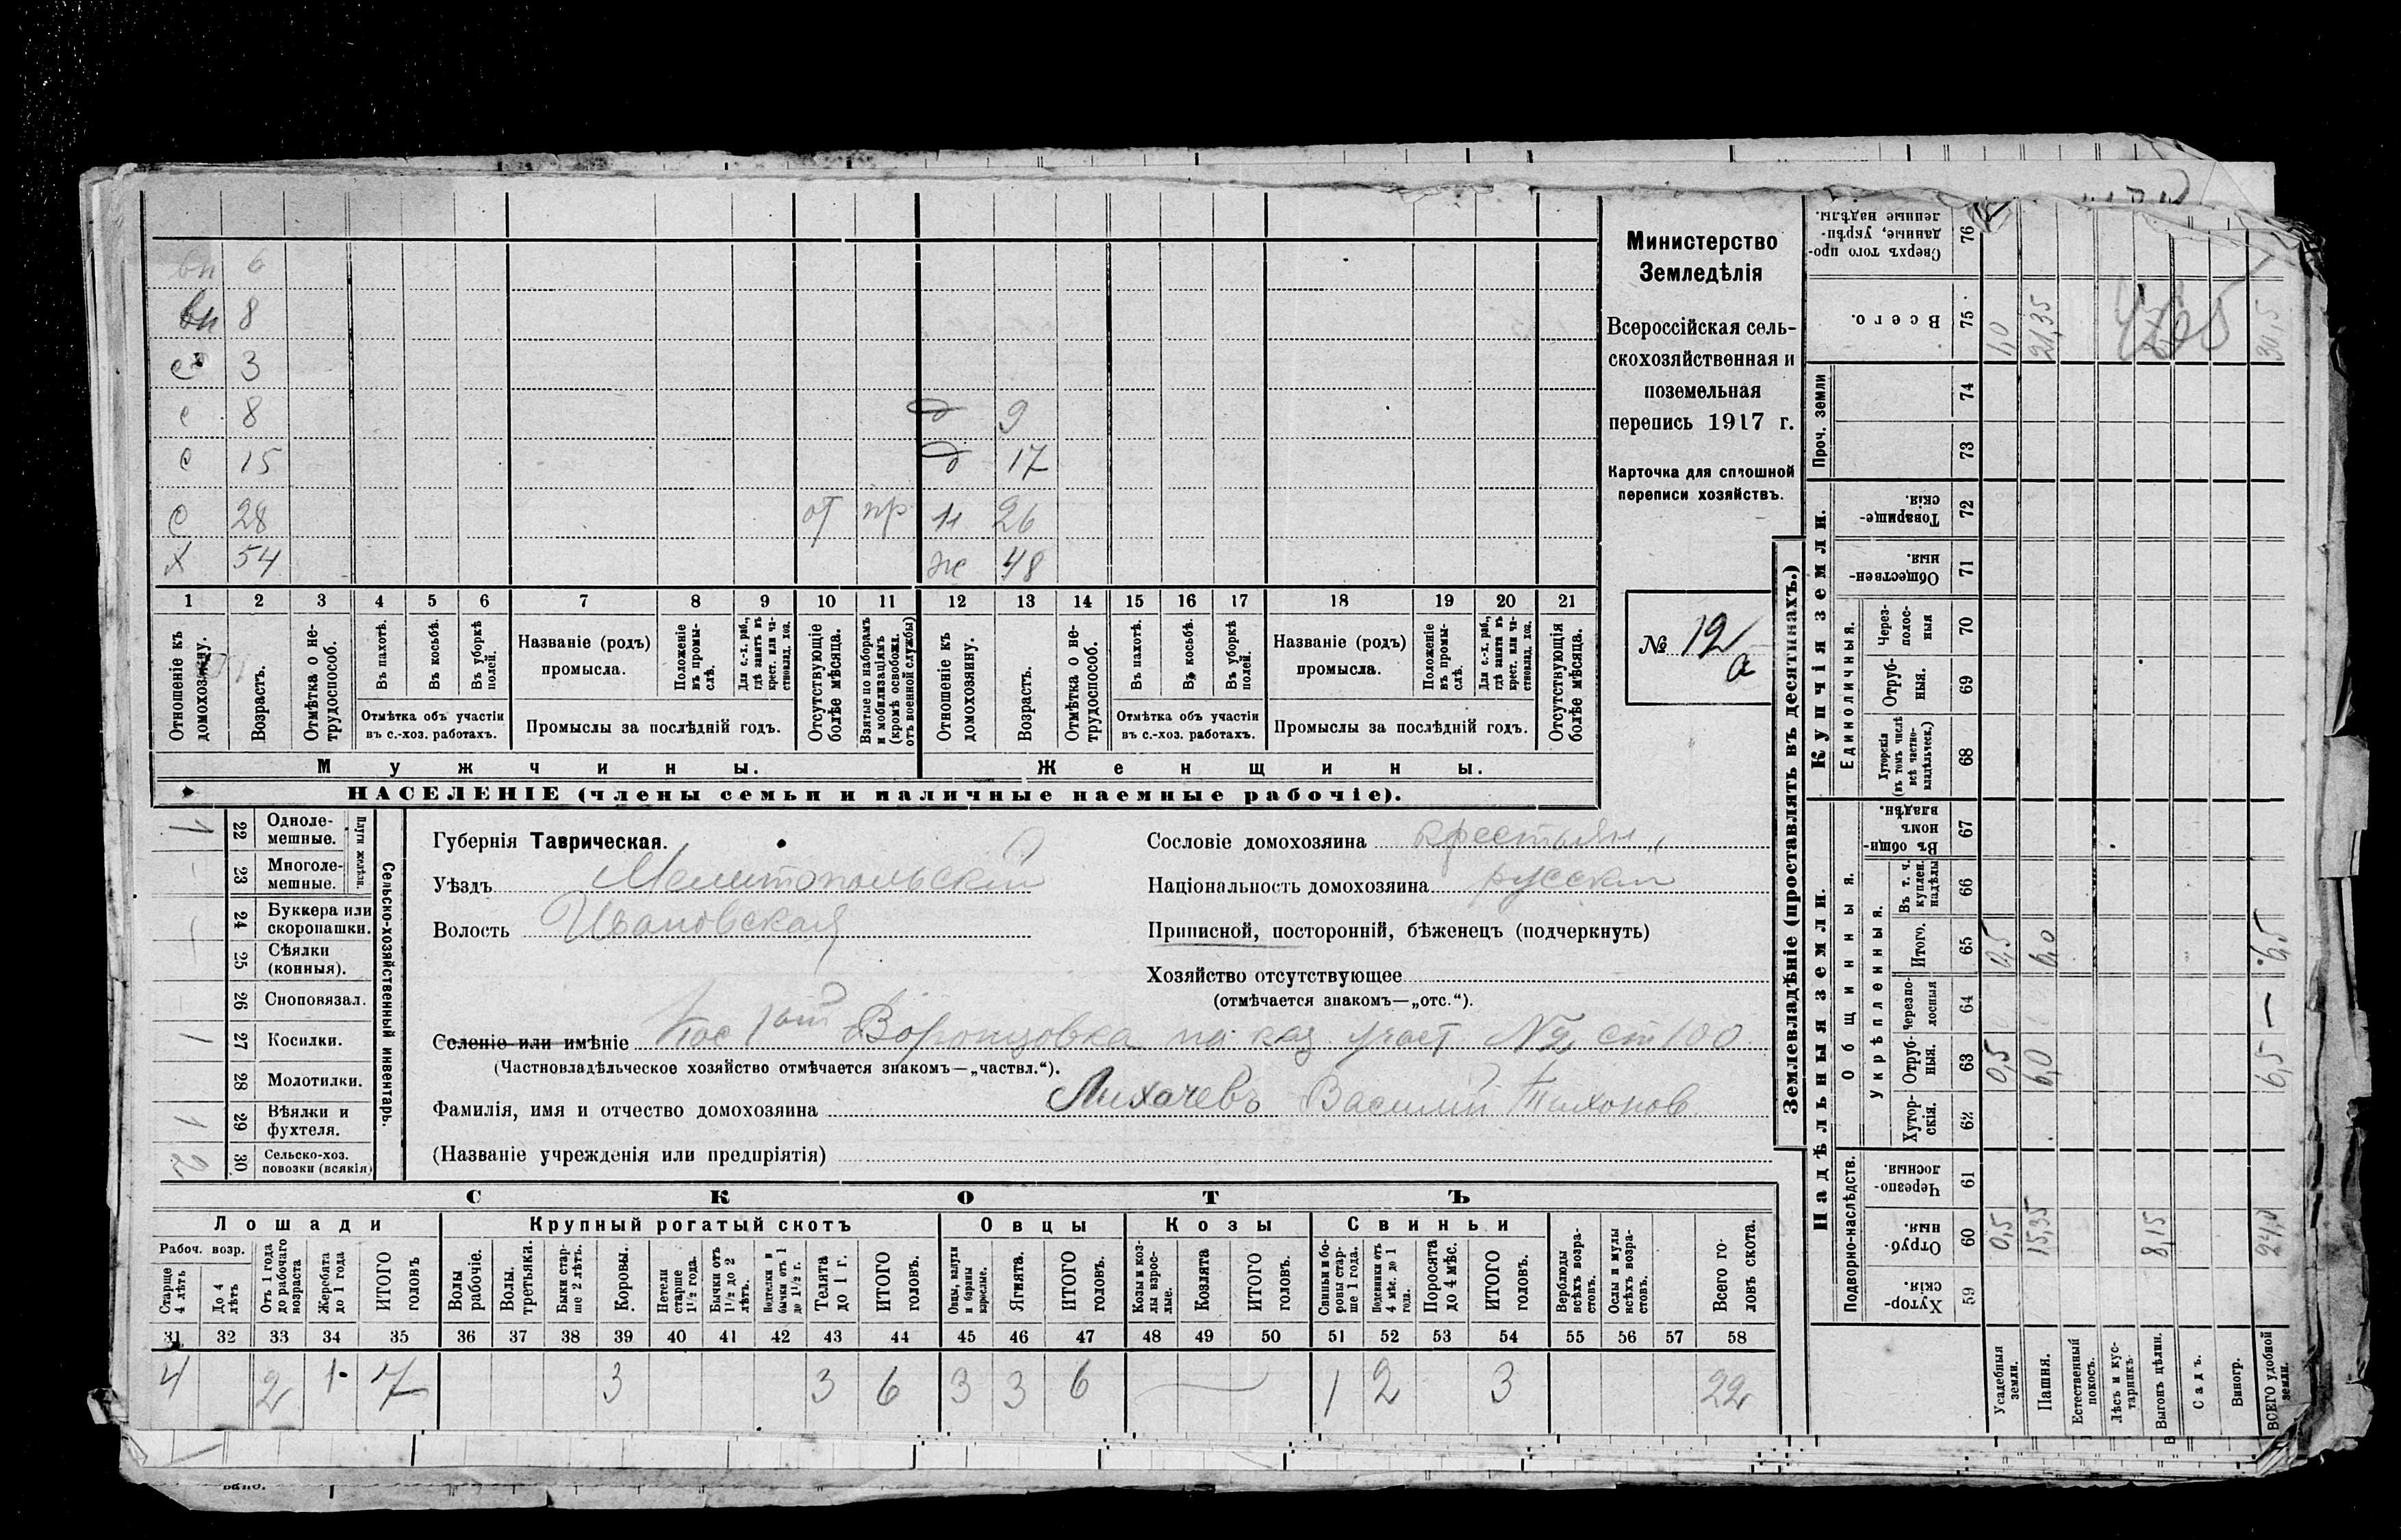 Министерство
Земледѣлія
Всероссійская сель-
скохозяйственная и
поземельная
перепись 1917 г.
Карточка для сплошной
переписи хозяйствъ.
№ 12 а
вн 6
вн 8
с 3
с 8 д 9
с 15 д 17
с 28 от пр н 26
х 54 ж 48
1 2 3 4 5 6 7 8 9 10 11 12 13 14 15 16 17 18 19 20 21
Отношеніе къ домохозяину.
Возрастъ.
Отмѣтка о не-трудоспособ.
Въ пахотѣ.
Въ косьбѣ.
Въ уборкѣ полей.
Отмѣтка объ участіи
въ с.-хоз. работахъ.
Названіе (родъ)
промысла.
Положеніе въ промы-слѣ.
Для с.-х. раб., гдѣ занятъ въ крест. или ча-стновлад. хоз.
Промыслы за послѣдній годъ.
Отсутствующіе болѣе мѣсяца.
Взятые по наборамъ и мобилизаціямъ (кромѣ освобожд. отъ военной службы)
Отношеніе къ домохозяину.
Возрастъ.
Отмѣтка о не-трудоспособ.
Въ пахотѣ.
Въ косьбѣ.
Въ уборкѣ полей.
Отмѣтка объ участіи
въ с.-хоз. работахъ.
Названіе (родъ)
промысла.
Положеніе въ промы-слѣ.
Для с.-х. раб., гдѣ занятъ въ крест. или ча-стновлад. хоз.
Промыслы за послѣдній годъ.
Отсутствующія болѣе мѣсяца.
Мужчины.
Женщины.
НАСЕЛЕНІЕ (члены семьи и наличные наемные рабочіе).
Сельско-хозяйственный инвентарь.
Плуги желѣзн.
1 22 Одноле-мешные.
— 23 Многоле-мешные.
— 24 Буккера или скоропашки.
25 Сѣялки (конныя).
26 Сноповязал.
1 27 Косилки.
28 Молотилки.
1 29 Вѣялки и фухтеля.
2 30 Сельско-хоз. повозки (всякія)
Губернія Таврическая.
Уѣздъ Мелитопольскій
Волость Ивановская
Сословіе домохозяина крестьян
Національность домохозяина русскій
Приписной, посторонній, бѣженецъ (подчеркнуть)
Хозяйство отсутствующее
(отмѣчается знакомъ—„отс.“).
Селеніе или имѣніе Пос Воронцовка на каз. участ №2, ст 100
(Частновладѣльческое хозяйство отмѣчается знакомъ—„частвл.“).
Фамилія, имя и отчество домохозяина Лихачевъ Василій Тихонов
(Названіе учрежденія или предпріятія)
СКОТЪ
Лошади
Крупный рогатый скотъ
Овцы
Козы
Свиньи
Рабоч. возр.
Старше 4 лѣтъ
До 4 лѣтъ
Отъ 1 года до рабочаго возраста
Жеребята до 1 года
ИТОГО головъ
Волы рабочіе.
Волы. третьяки.
Быки стар-ше 2 лѣтъ.
Коровы.
Нетели старше 1½ года.
Бычки отъ 1½ до 2 лѣтъ.
Нетелки и бычки отъ 1 до 1½ г.
Телята до 1 г.
ИТОГО головъ.
Овцы, валухи и бараны взрослые.
Ягнята.
ИТОГО головъ.
Козы и коз-лы взрос-лые.
Козлята
ИТОГО головъ.
Свиньи и бо-ровы стар-ше 1 года.
Подсвинки отъ 4 мѣс. до 1 года.
Поросята до 4 мѣс.
ИТОГО головъ.
Верблюды всѣхъ возра-стовъ.
Ослы и мулы всѣхъ возра-стовъ.
Всего го-ловъ скота.
31 32 33 34 35 36 37 38 39 40 41 42 43 44 45 46 47 48 49 50 51 52 53 54 55 56 57 58
4 2 1 7 3 3 6 3 3 6 — 1 2 3 22
Землевладѣніе (проставлять въ десятинахъ.)
Купчія земли.
Надѣльныя земли.
Сверхъ того про-данные, укрѣп-ленные надѣлы. 76
Всего. 75 1,0 21,35 30,5
Проч. земли
74
73
Товарище-скія. 72
Обществен-ныя. 71
Единоличныя.
Через-полос-ныя 70
Отруб-ныя. 69
Хуторскія (въ томъ числѣ всѣ частно-владѣльческ.) 68
Общинныя.
Въ общи-номъ владѣн. 67
Укрѣпленныя.
Въ т. ч. куплен. надѣлы 66
Итого. 65 0,5 6,0 6,5
Черезпо-лосныя 64
Отруб-ныя. 63 0,5 6,0 6,5 —
Хутор-скія. 62
Подворно-наслѣдств.
Черезпо-лосныя. 61
Отруб-ныя. 60 0,5 15,35 8,15 24,0
Хутор-скія. 59
Усадебныя земли.
Пашня.
Естественный покосъ.
Лѣсъ и кус-тарникъ.
Выгонъ цѣлин.
Садъ.
Виногр.
ВСЕГО удобной земли.